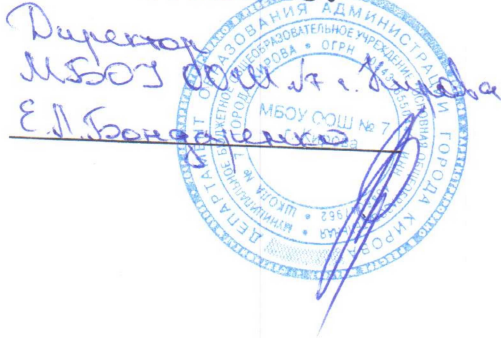 Директор
МБОУ ООШ №7 г. Кирова
Е.Л. Бондаренко
ДЕПАРТАМЕНТ ОБРАЗОВАНИЯ АДМИНИСТРАЦИИ ГОРОДА КИРОВА
МУНИЦИПАЛЬНОЕ БЮДЖЕТНОЕ ОБЩЕОБРАЗОВАТЕЛЬНОЕ УЧРЕЖДЕНИЕ
ШКОЛА № 7
ГОРОДА КИРОВА * ОГРН
МБОУ ООШ № 7